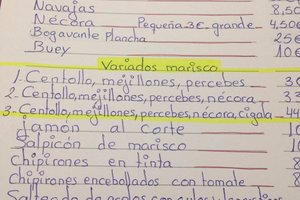 Navajas 8,50
Nécora Pequeña 3€ grande 4,50
Bogavante Plancha 25€
Buey 10€
Variados marisco
1. Centollo, mejillones, percebes
2. Centollo, mejillones, percebes, nécora
3. Centollo, mejillones, percebes, nécora, cigala
Jamón al corte
Salpicón de marisco
Chipirones en tinta
Chipirones encebollados con tomate